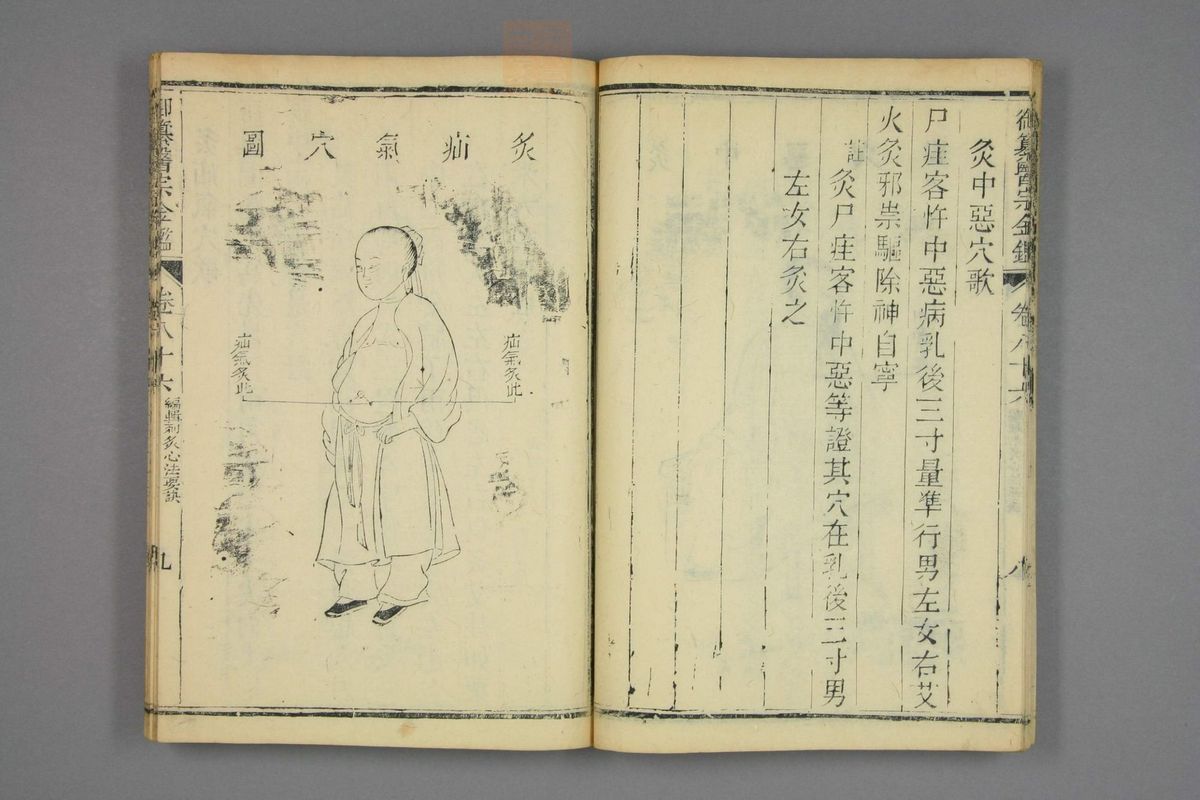 御纂醫宗金鑑
卷八十六
八
灸中惡穴歌
尸疰客忤中惡病乳後三寸量準行男左女右艾
火灸邪祟驅除神自寧
註
灸尸疰客忤中惡等證其穴在乳後三寸男
左女右灸之
灸疝氣穴圖
疝氣灸此
疝氣灸此
御纂醫宗金鑑
卷八十六
編輯刺灸心法要訣
九